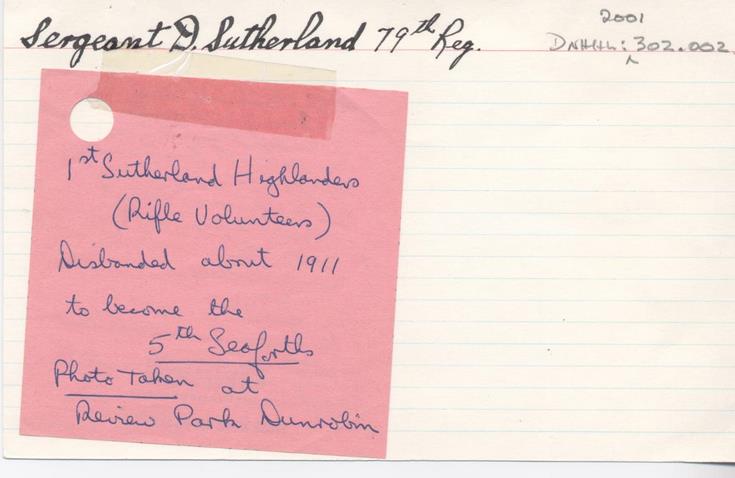 Sergeant D. Sutherland 79th Reg.
2001
DNHHL: ^ 302.002
1st Sutherland Highlanders
(Rifle Volunteers)
Disbanded about 1911
to become the
5th Seaforths
Photo Taken at
Review Park Dunrobin